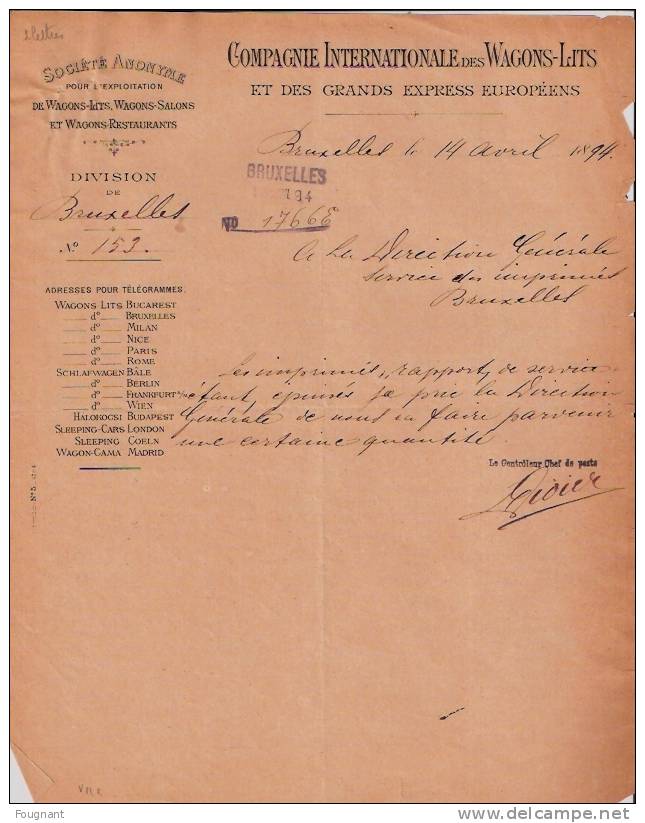 Société Anonyme
POUR L'EXPLOITATION
DE WAGONS-LITS, WAGONS-SALONS
ET WAGONS-RESTAURANTS
COMPAGNIE INTERNATIONALE DES WAGONS-LITS
ET DES GRANDS EXPRESS EUROPÉENS
Bruxelles le 14 avril 1894.
BRUXELLES
94
NO 17668
DIVISION
DE
Bruxelles
N° 153.
A la Direction Générale
service des imprimés
Bruxelles
ADRESSES POUR TÉLÉGRAMMES.
WAGONS LITS BUCAREST
d° BRUXELLES
d° MILAN
d° NICE
d° PARIS
d° ROME
SCHLAFWAGEN BÂLE
d° BERLIN
d° FRANKFURT a/M
d° WIEN
HALOKOCSI BUDAPEST
SLEEPING-CARS LONDON
SLEEPING COELN
WAGON-CAMA MADRID
N° 5
Les imprimés, "rapport, de service
étant, épuisés je prie la Direction
Générale de nous en faire parvenir
une certaine quantité.
Le Contrôleur Chef de poste
Fougnant
©delcampe.net